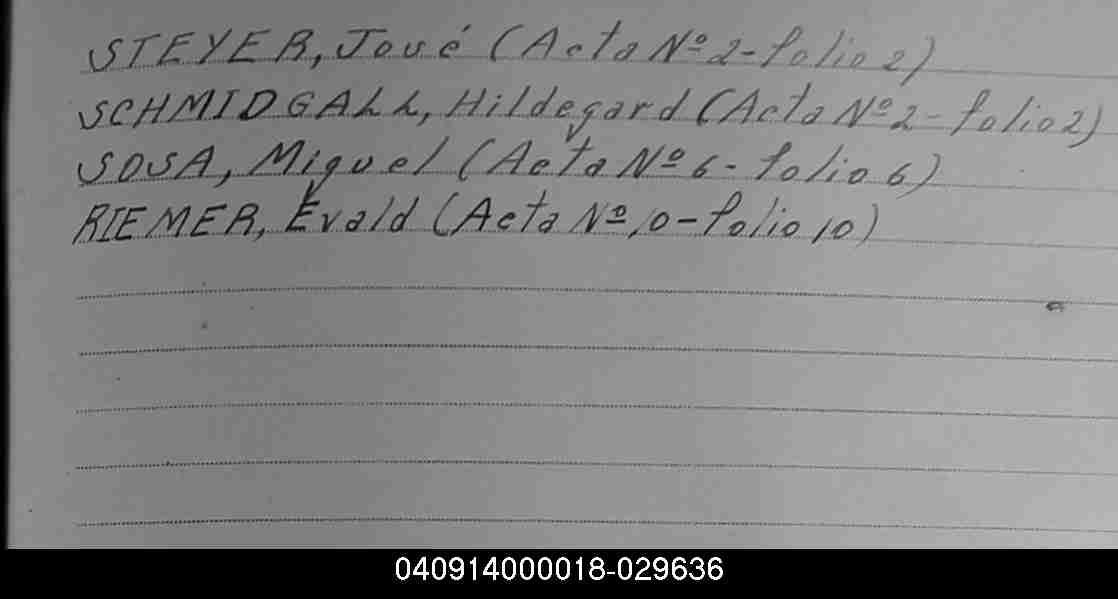 STEYER, José (Acta Nº 2-folio 2)
SCHMIDGALL, Hildegard (Acta Nº 2-folio 2)
SOSA, Miguel (Acta Nº 6-folio 6)
RIEMER, Evald (Acta Nº 10-folio 10)
040914000018-029636